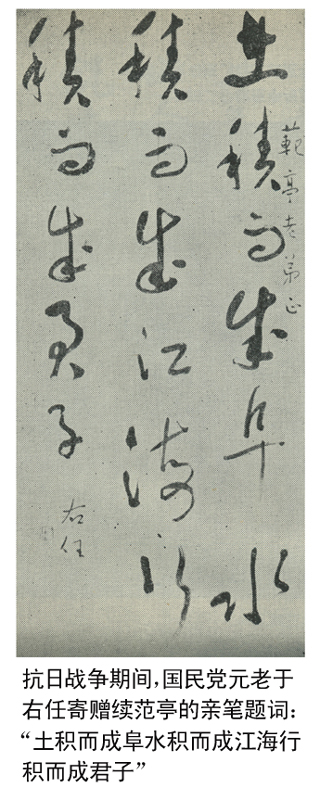 土積而成阜水
範亭老弟正
積而成江海行
積而成君子
右任
抗日战争期间，国民党元老于
右任寄赠续范亭的亲笔题词：
“土积而成阜水积而成江海行
积而成君子”